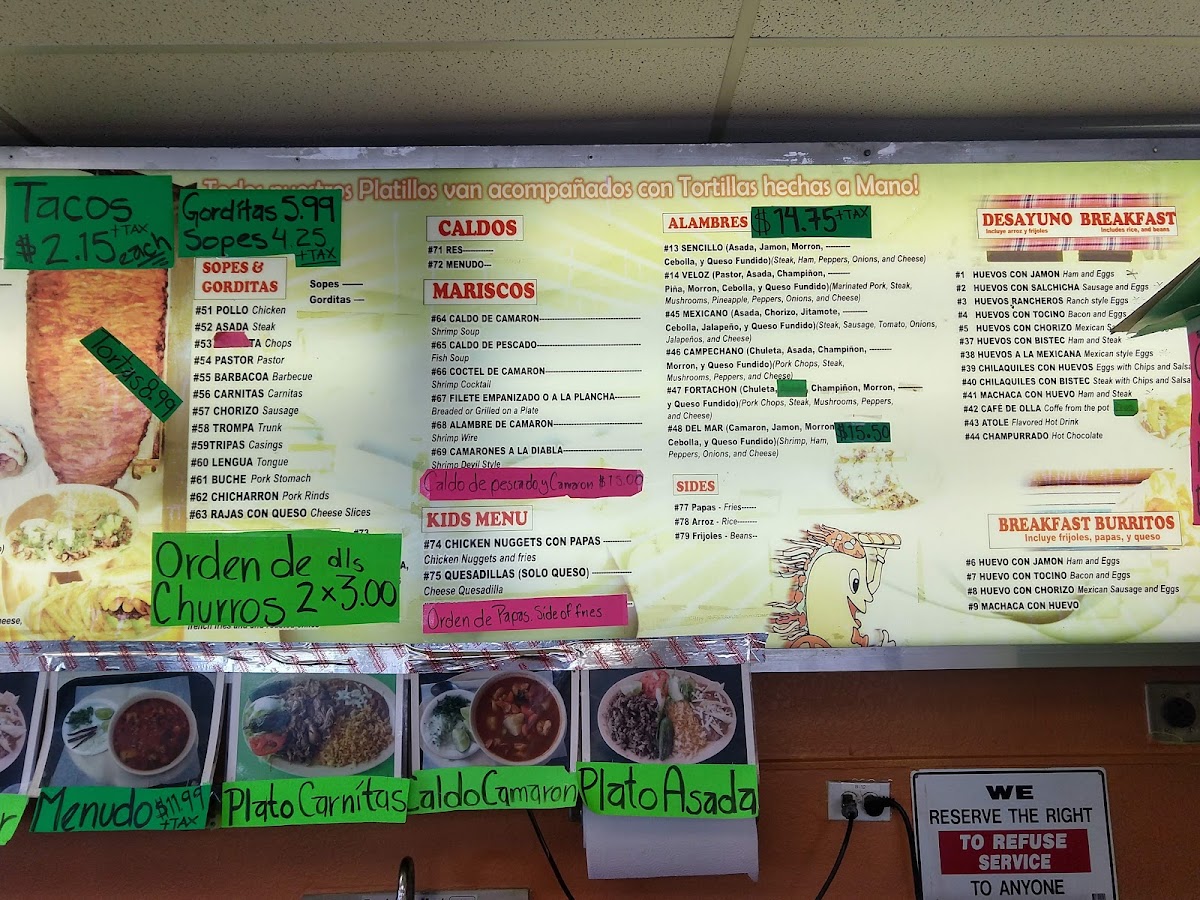 Todos nuestros Platillos van acompañados con Tortillas hechas a Mano!
Tacos
$2.15 +TAX each
Gorditas 5.99
Sopes 4.25
+TAX
SOPES &
GORDITAS
Sopes
Gorditas
#51 POLLO Chicken
#52 ASADA Steak
#53 TA Chops
#54 PASTOR Pastor
#55 BARBACOA Barbecue
#56 CARNITAS Carnitas
#57 CHORIZO Sausage
#58 TROMPA Trunk
#59TRIPAS Casings
#60 LENGUA Tongue
#61 BUCHE Pork Stomach
#62 CHICHARRON Pork Rinds
#63 RAJAS CON QUESO Cheese Slices
Tortas 8.99
Orden de dls
Churros 2x3.00
CALDOS
#71 RES
#72 MENUDO
MARISCOS
#64 CALDO DE CAMARON
Shrimp Soup
#65 CALDO DE PESCADO
Fish Soup
#66 COCTEL DE CAMARON
Shrimp Cocktail
#67 FILETE EMPANIZADO O A LA PLANCHA
Breaded or Grilled on a Plate
#68 ALAMBRE DE CAMARON
Shrimp Wire
#69 CAMARONES A LA DIABLA
Shrimp Devil Style
Caldo de pescado y Camaron $15.00
KIDS MENU
#74 CHICKEN NUGGETS CON PAPAS
Chicken Nuggets and fries
#75 QUESADILLAS (SOLO QUESO)
Cheese Quesadilla
Orden de Papas. Side of fries
ALAMBRES $14.75 +TAX
#13 SENCILLO (Asada, Jamon, Morron,
Cebolla, y Queso Fundido)(Steak, Ham, Peppers, Onions, and Cheese)
#14 VELOZ (Pastor, Asada, Champiñon,
Piña, Morron, Cebolla, y Queso Fundido)(Marinated Pork, Steak,
Mushrooms, Pineapple, Peppers, Onions, and Cheese)
#45 MEXICANO (Asada, Chorizo, Jitamote,
Cebolla, Jalapeño, y Queso Fundido)(Steak, Sausage, Tomato, Onions,
Jalapeños, and Cheese)
#46 CAMPECHANO (Chuleta, Asada, Champiñon,
Morron, y Queso Fundido)(Pork Chops, Steak,
Mushrooms, Peppers, and Cheese)
#47 FORTACHON (Chuleta, Champiñon, Morron,
y Queso Fundido)(Pork Chops, Steak, Mushrooms, Peppers,
and Cheese)
#48 DEL MAR (Camaron, Jamon, Morron $15.50
Cebolla, y Queso Fundido)(Shrimp, Ham,
Peppers, Onions, and Cheese)
SIDES
#77 Papas - Fries
#78 Arroz - Rice
#79 Frijoles - Beans
DESAYUNO BREAKFAST
Incluye arroz y frijoles Includes rice, and beans
#1 HUEVOS CON JAMON Ham and Eggs
#2 HUEVOS CON SALCHICHA Sausage and Eggs
#3 HUEVOS RANCHEROS Ranch style Eggs
#4 HUEVOS CON TOCINO Bacon and Eggs
#5 HUEVOS CON CHORIZO Mexican
#37 HUEVOS CON BISTEC Ham and Steak
#38 HUEVOS A LA MEXICANA Mexican style Eggs
#39 CHILAQUILES CON HUEVOS Eggs with Chips and Salsa
#40 CHILAQUILES CON BISTEC Steak with Chips and Salsa
#41 MACHACA CON HUEVO Ham and Steak
#42 CAFE DE OLLA Coffe from the pot
#43 ATOLE Flavored Hot Drink
#44 CHAMPURRADO Hot Chocolate
BREAKFAST BURRITOS
Incluye frijoles, papas, y queso
#6 HUEVO CON JAMON Ham and Eggs
#7 HUEVO CON TOCINO Bacon and Eggs
#8 HUEVO CON CHORIZO Mexican Sausage and Eggs
#9 MACHACA CON HUEVO
Menudo $11.99
+TAX
Plato Carnítas
Caldo Camaron
Plato Asada
WE
RESERVE THE RIGHT
TO REFUSE
SERVICE
TO ANYONE